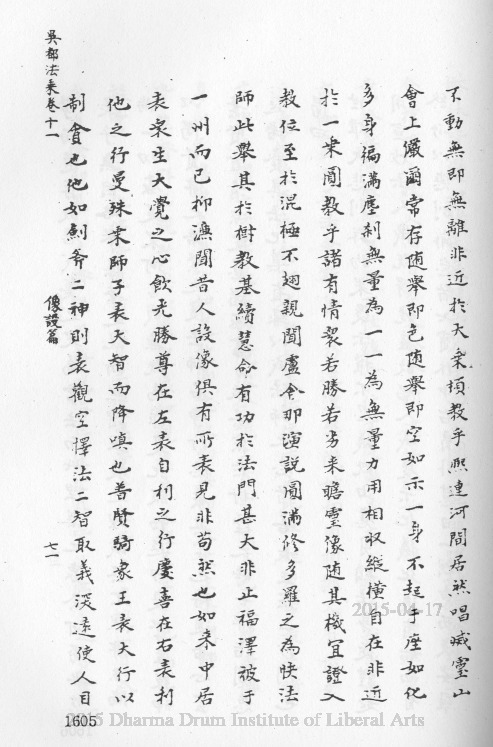 不動無即無離非近於大乘頓教乎熈連河間居然唱滅靈山
會上儼爾常存随舉即色随舉即空如示一身不起于座如化
多身徧滿塵刹無量為一一為無量力用相収縱橫自在非近
於一乘圓教乎諸有情裂若勝若劣来瞻靈像随其機冝證入
教位至於混極不翅親聞盧舍那演説圓滿修多羅之為快法
師此舉其於樹教基續慧命有功於法門甚大非止福澤被于
一州而已抑漁聞昔人設像俱有所表見非苟然也如来中居
表衆生大覺之心飲光勝尊在左表自利之行慶喜在右表利
他之行曼殊乗師子表大智而降嗔也普賢騎象王表大行以
制貪也他如劍斧二神則表觀空擇法二智取義深逺使人目
吳都法乘卷十一
像設篇
七一
1605
2015-04-17
2015 Dharma Drum Institute of Liberal Arts